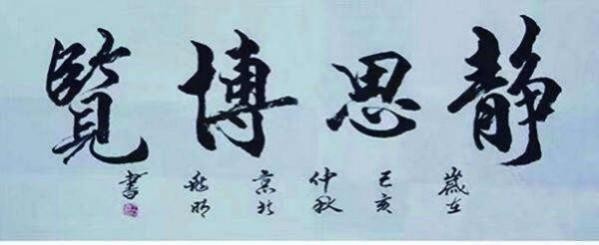 静思博覽
歲在
己亥
仲秋
書